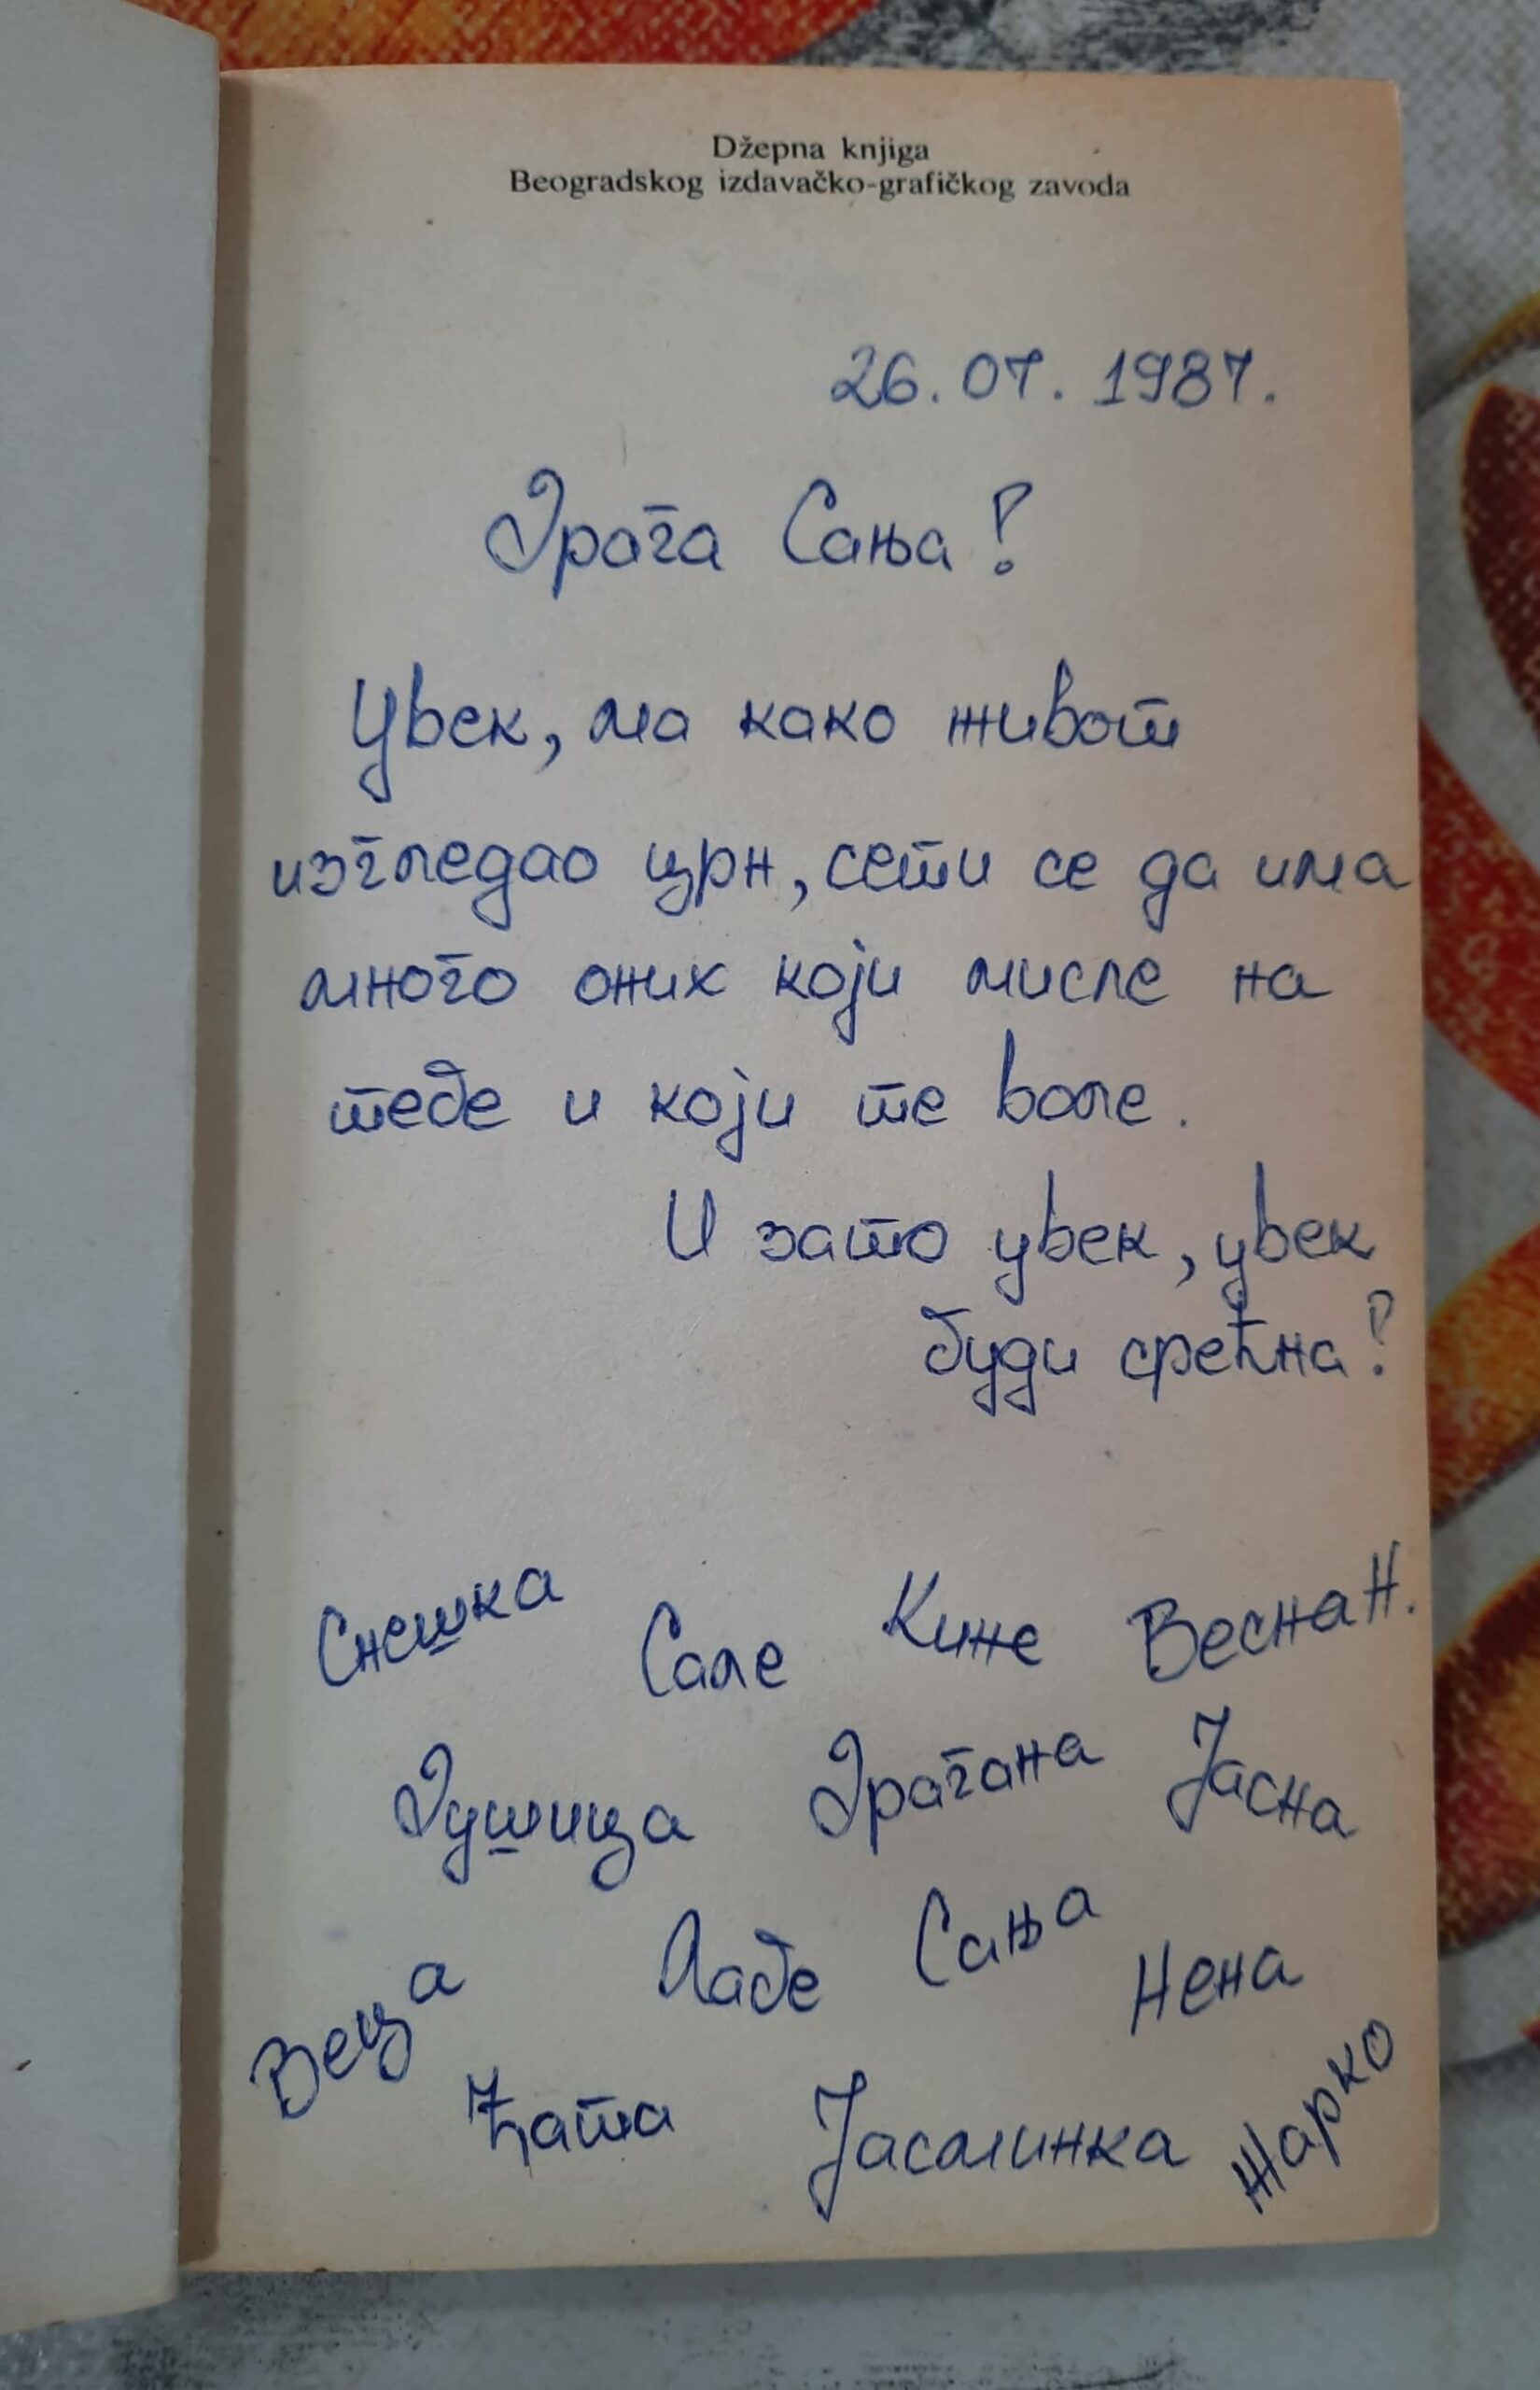 Džepna knjiga
Beogradskog izdavačko-grafičkog zavoda
26. 07. 1987.
Драга Сања!
Увек, ма како живот
изгледао црн, сети се да има
много оних који мисле на
тебе и који те воле.
И зато увек, увек
буди срећна!
Снешка Сале Кине Весна Н.
Душица Драгана Јасна
Веца Лабе Сања Нена
Ћата Јасминка Жарко